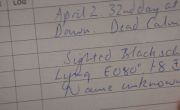 LOG
April 2 32nd day at
Down Dead Calm
Sighted Black sch
Lying E 080°
Name unknown